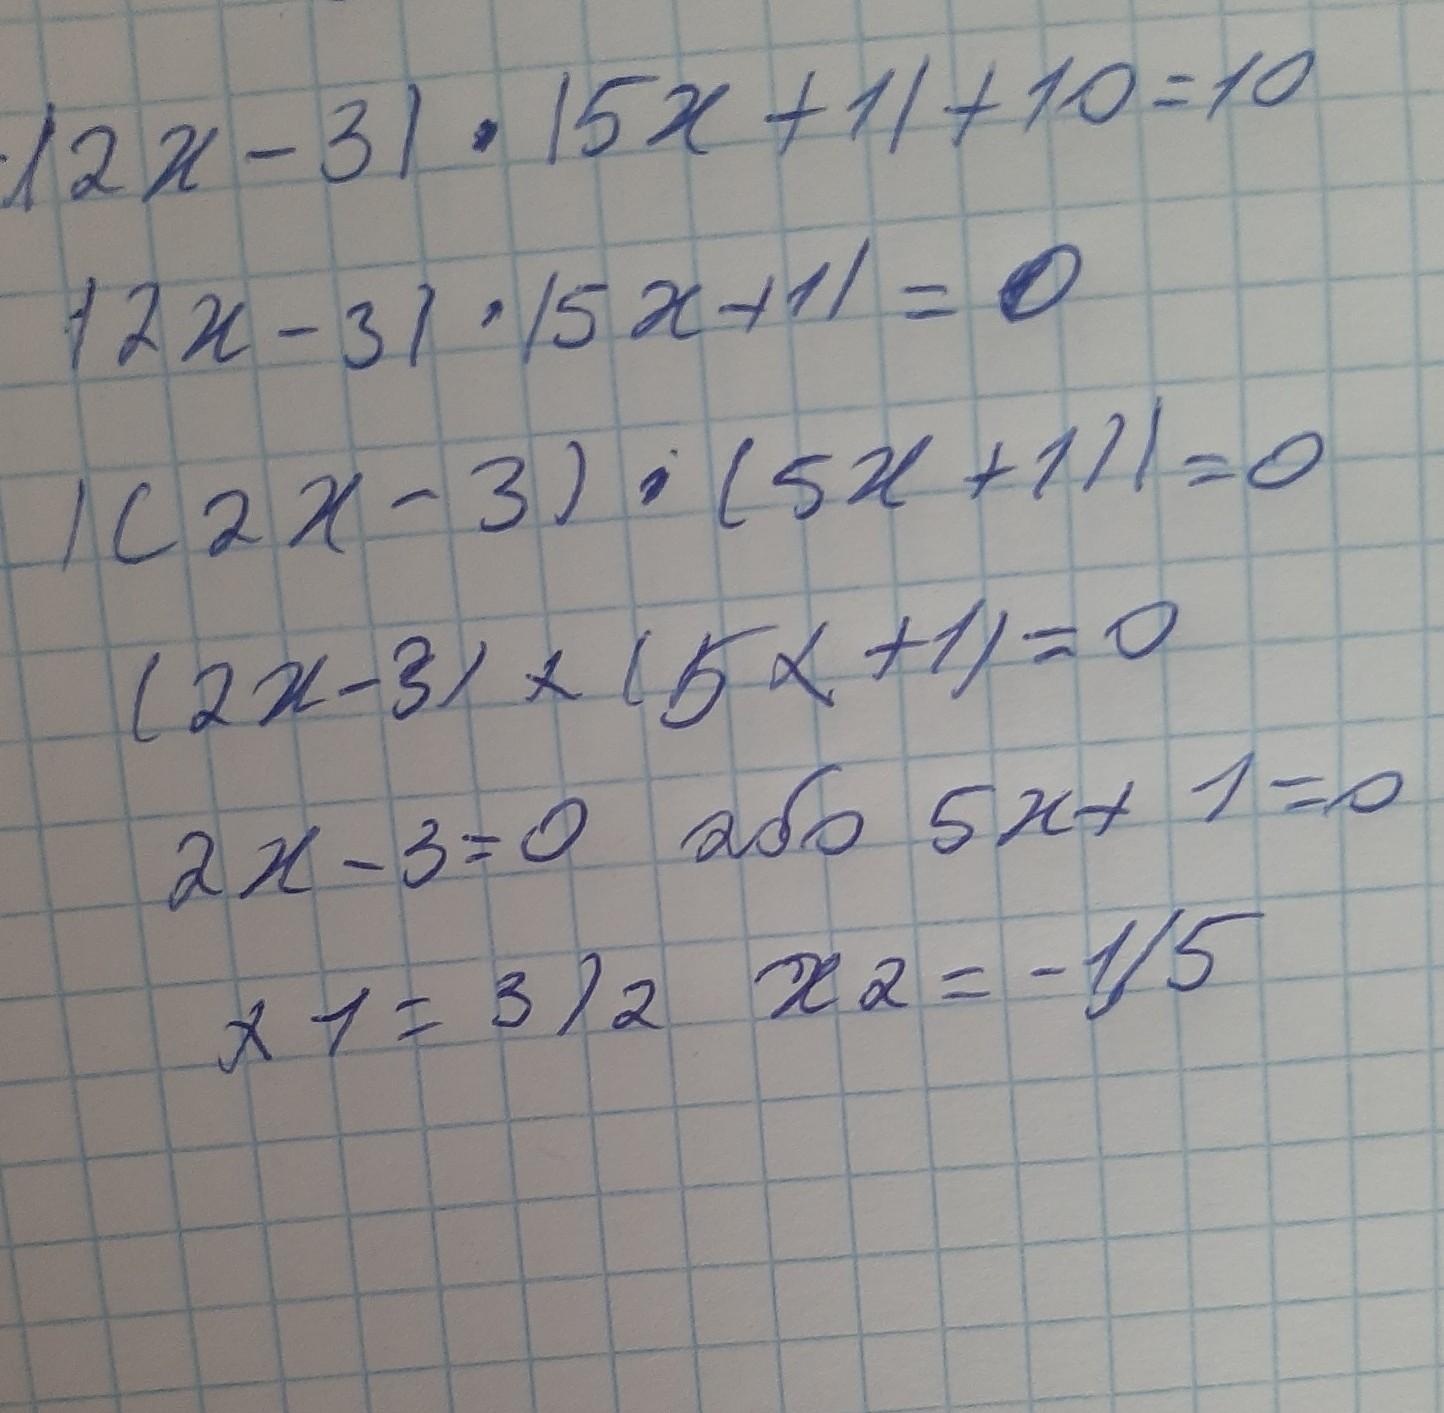 |2x-3|·|5x+1|+10=10
|2x-3|·|5x+1|=0
|(2x-3)·(5x+1)|=0
(2x-3)×(5x+1)=0
2x-3=0 або 5x+1=0
x1=3/2 x2=-1/5